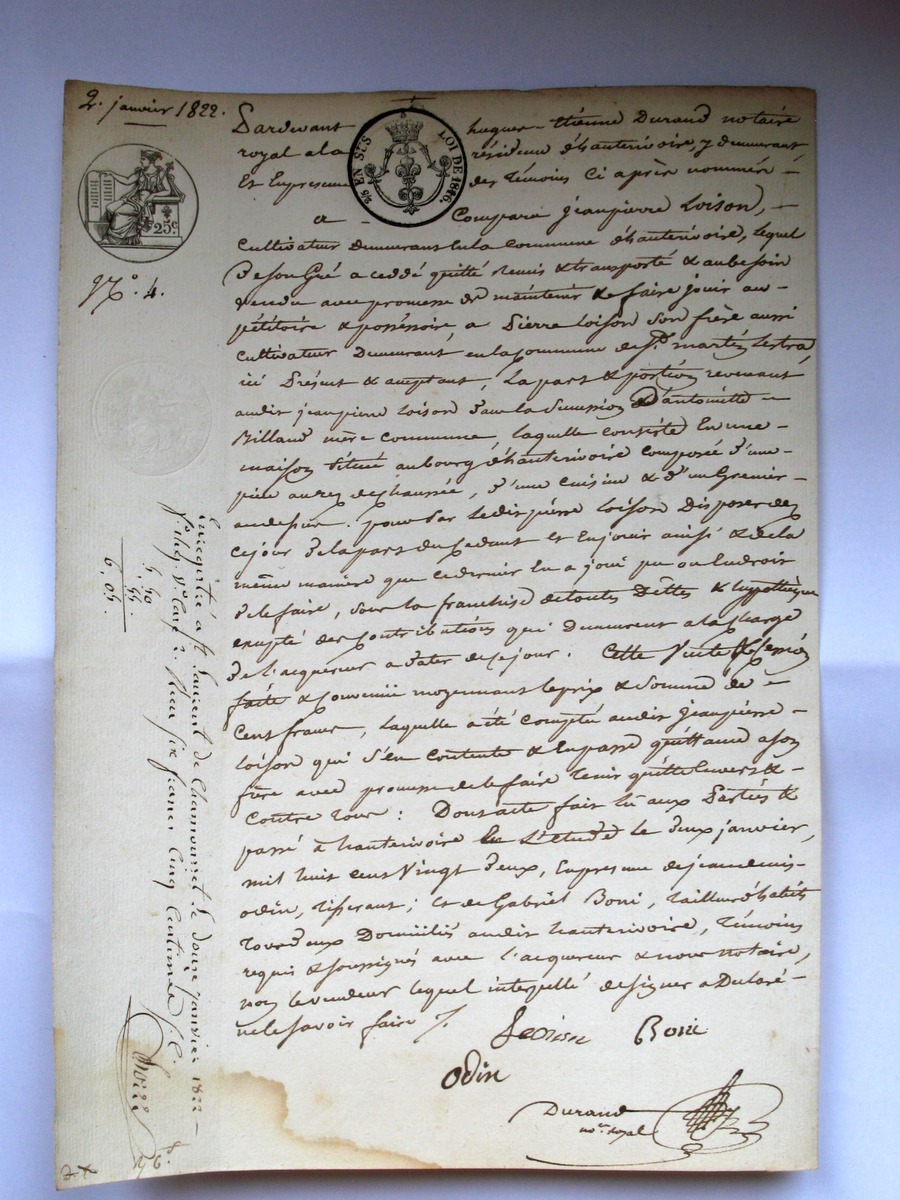 2. janvier 1822.
Pardevant hugues-Etienne Durand notaire
royal a la résidence d'hauterivoire, y demeurant,
Et En presence des témoins Ci après nommés -
a - Comparu jeanpierre Loison, -
Cultivateur Demeurant En la Commune d'hauterivoire, lequel
De son Gré a ceddé quitté Remis & transporté & au besoin
vendu avec promesse de maintenir & faire jouir au-
pétitoire & posséssoire, a Pierre Loison Son frère aussi
Cultivateur Demeurant en la Commune de St. martin Lestra,
ici Présent & acceptant, La part & portion revenant
audit jeanpierre Loison Dans la Succession D'antoinette -
Billaud mère Commune, laquelle consiste En une -
maison Située au bourg d'hauterivoire composée D'une -
pièce au rez de chaussée, D'une Cuisine & D'un Grenier
au dessus. pour Par Ledit pierre Loison Disposer dez
Ce jour De la part du Cedant Et En jouir ainsi & de la
même manière que ce dernier En a joui pu ou du droit
De le faire, Sous la franchise de toutes Dettes & hypothèque
excepté des Contributions qui Demeurent a la charge
De l'acquereur a Dater de ce jour. Cette Vente & Cession
faite & Convenue moyennant le prix & Somme de -
Cent francs, laquelle a été Comptée audit jeanpierre -
Loison qui S'en Contente & En passe quittance a Son
frère avec promesse de le faire tenir quitte Envers & -
Contre tous : Dont acte fait lu aux Parties &
passé à hauterivoire En L'étude le Deux janvier,
mil huit cent Vingt Deux, En presence de jean denis -
odin, tisserant ; Et de Gabriel Boni, tailleur d'habits
Tous Deux Domiciliés audit hauterivoire, témoins
requis & Soussignés avec l'acquereur & nous notaire,
non le vendeur lequel interpellé de signer a Declaré -
ne le Savoir faire /.
Loison Boni
Odin
Durand
nore. royal
25c
45 EN SUS LOI DE 1816.
No. 4.
Enregistré à St. Laurent de Chamousset le douze janvier 1822 -
fo. Vo. Case 2. Reçu six francs cinq Centimes
5, 50
55
6, 05.